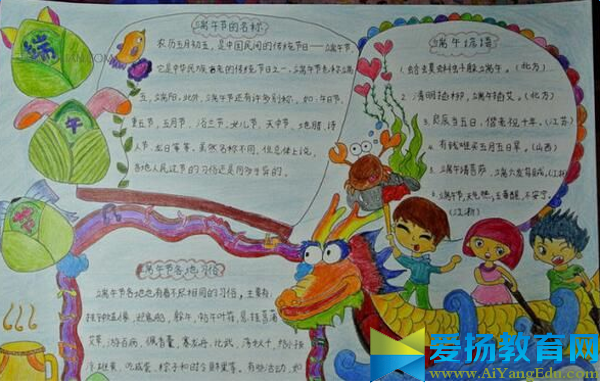 端
午
节
端午节的名称
农历五月初五,是中国民间的传统节日——端午节,
它是中华民族古老的传统节日之一。端午节也称端
五,端阳。此外,端午节还有许多别称,如:午日节、
重五节,五月节、浴兰节、女儿节,天中节、地腊、诗
人节、龙日等等。虽然名称不同,但总体上说,
各地人民过节的习俗还是同多于异的。
端午谚语
1. 端午
2. 清明插柳,端午插艾。(北方)
3. 良辰当五日,偕老祝千年。(江苏)
4. 有钱难买五月五日旱。(山西)
5. 端午
6. 端午节,天气热;五毒醒,不安宁。
端午节各地习俗
端午节各地也有着不尽相同的习俗,主要有
挂钟馗像,迎鬼船、躲午、贴午叶符,悬挂菖蒲
艾草,游百病,佩香囊,赛龙舟,比武,荡秋千,给小孩
爱扬教育网
www.AiYangEdu.com